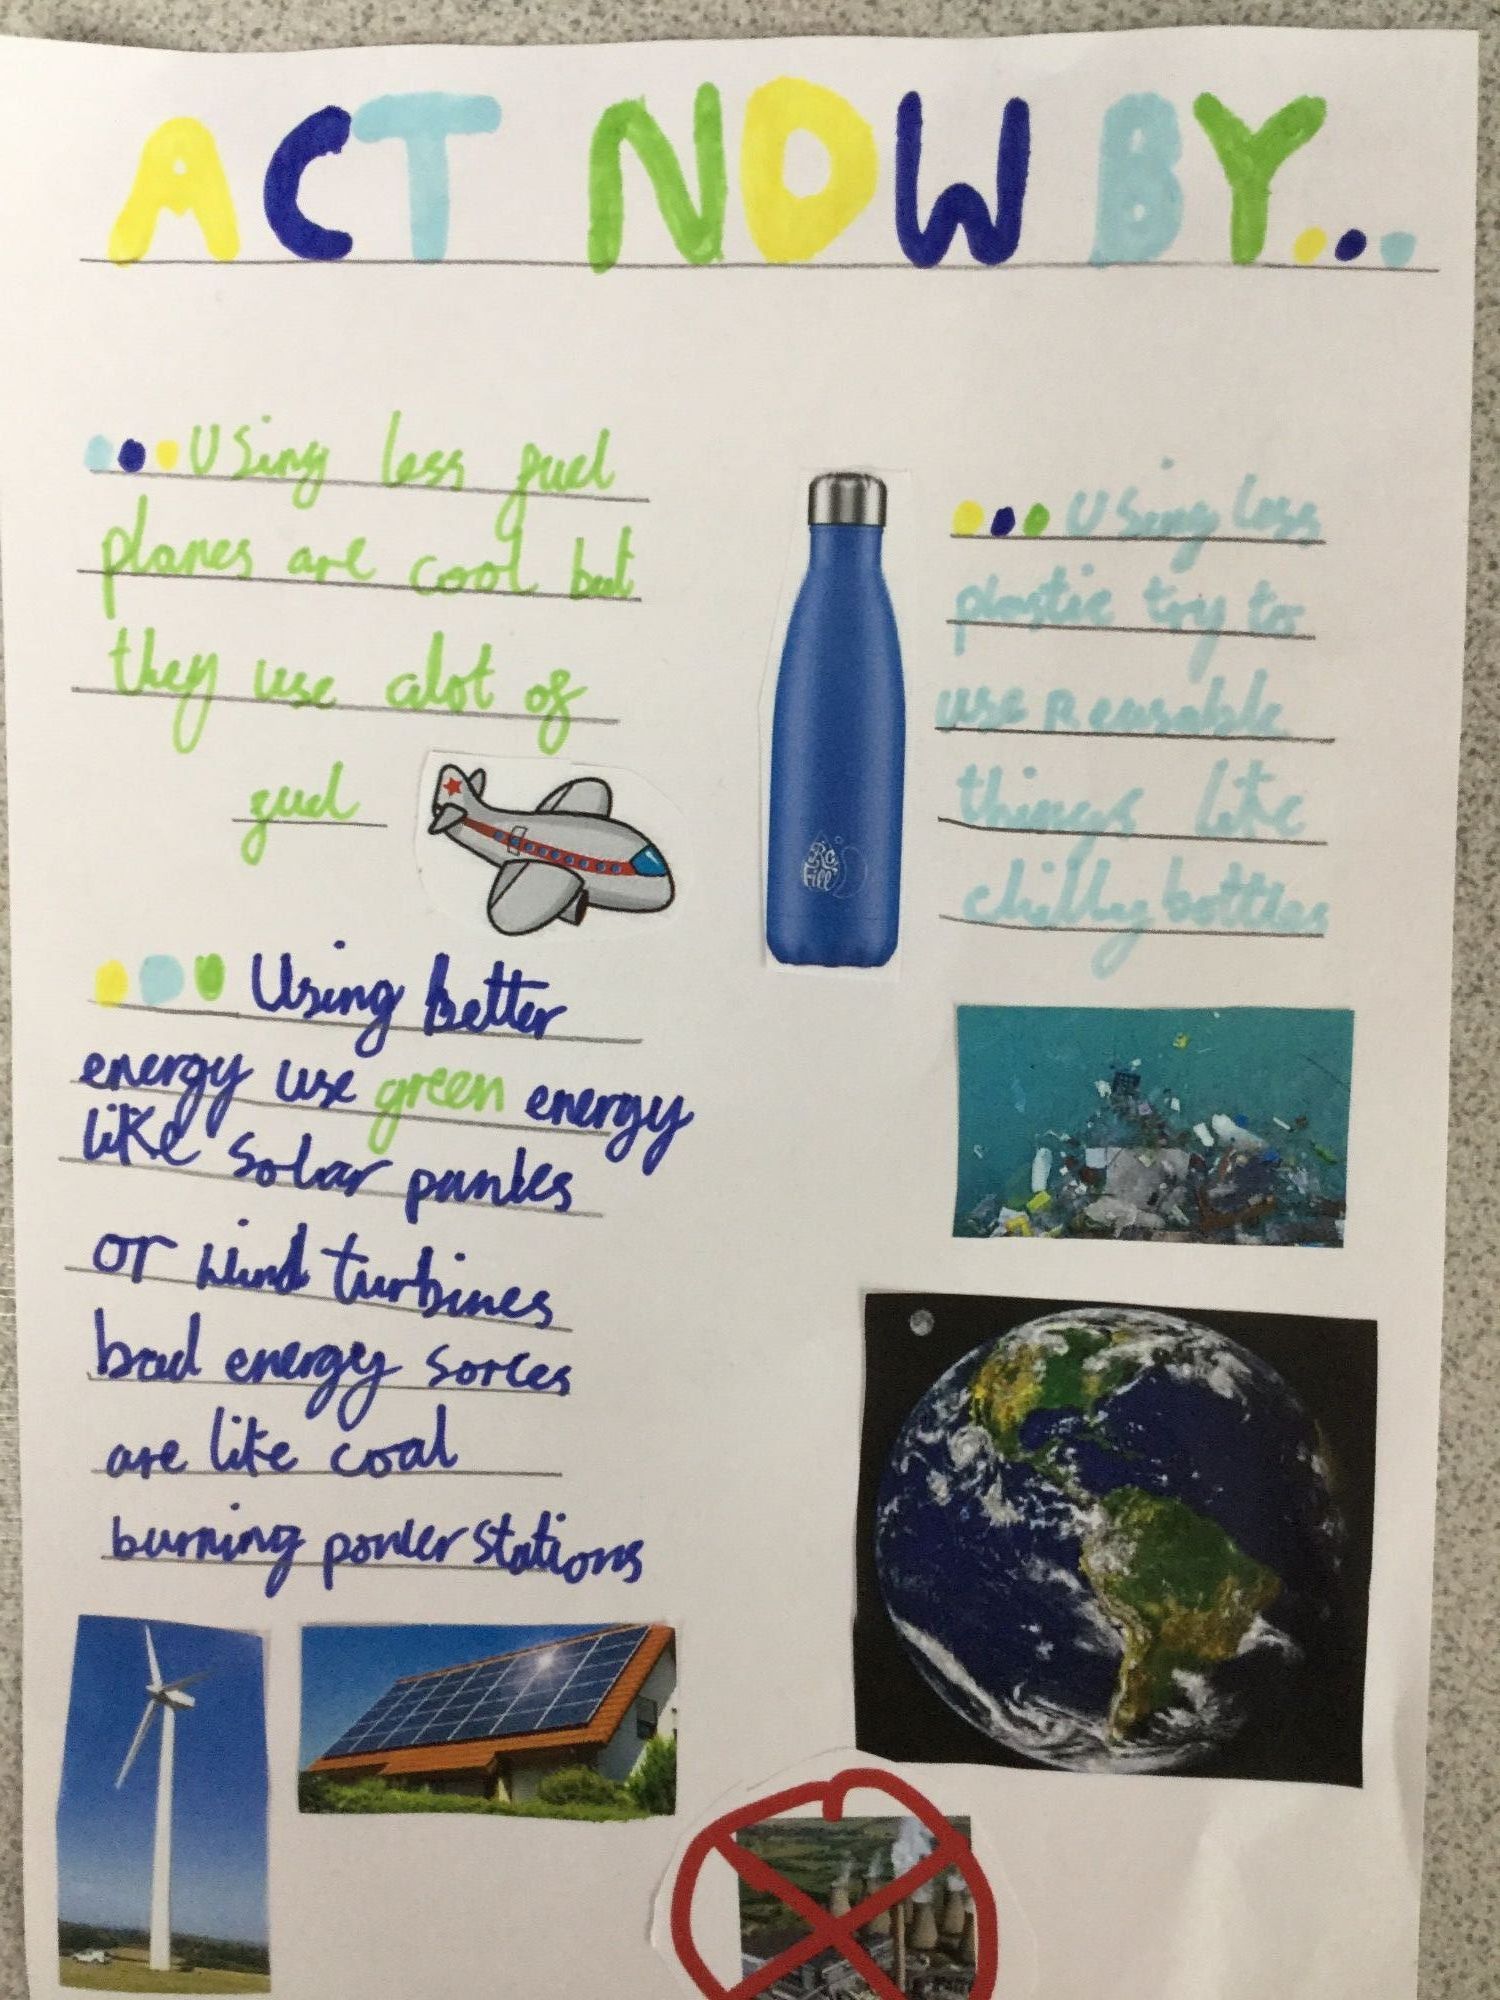 ACT NOW BY...
...Using less fuel
planes are cool but
they use alot of
fuel
...Using less
plastic try to
use Reusable
things like
chilly bottles
Re
Fill
...Using better
energy use green energy
like Solar panles
or wind turbines
bad energy sorces
are like coal
burning power stations